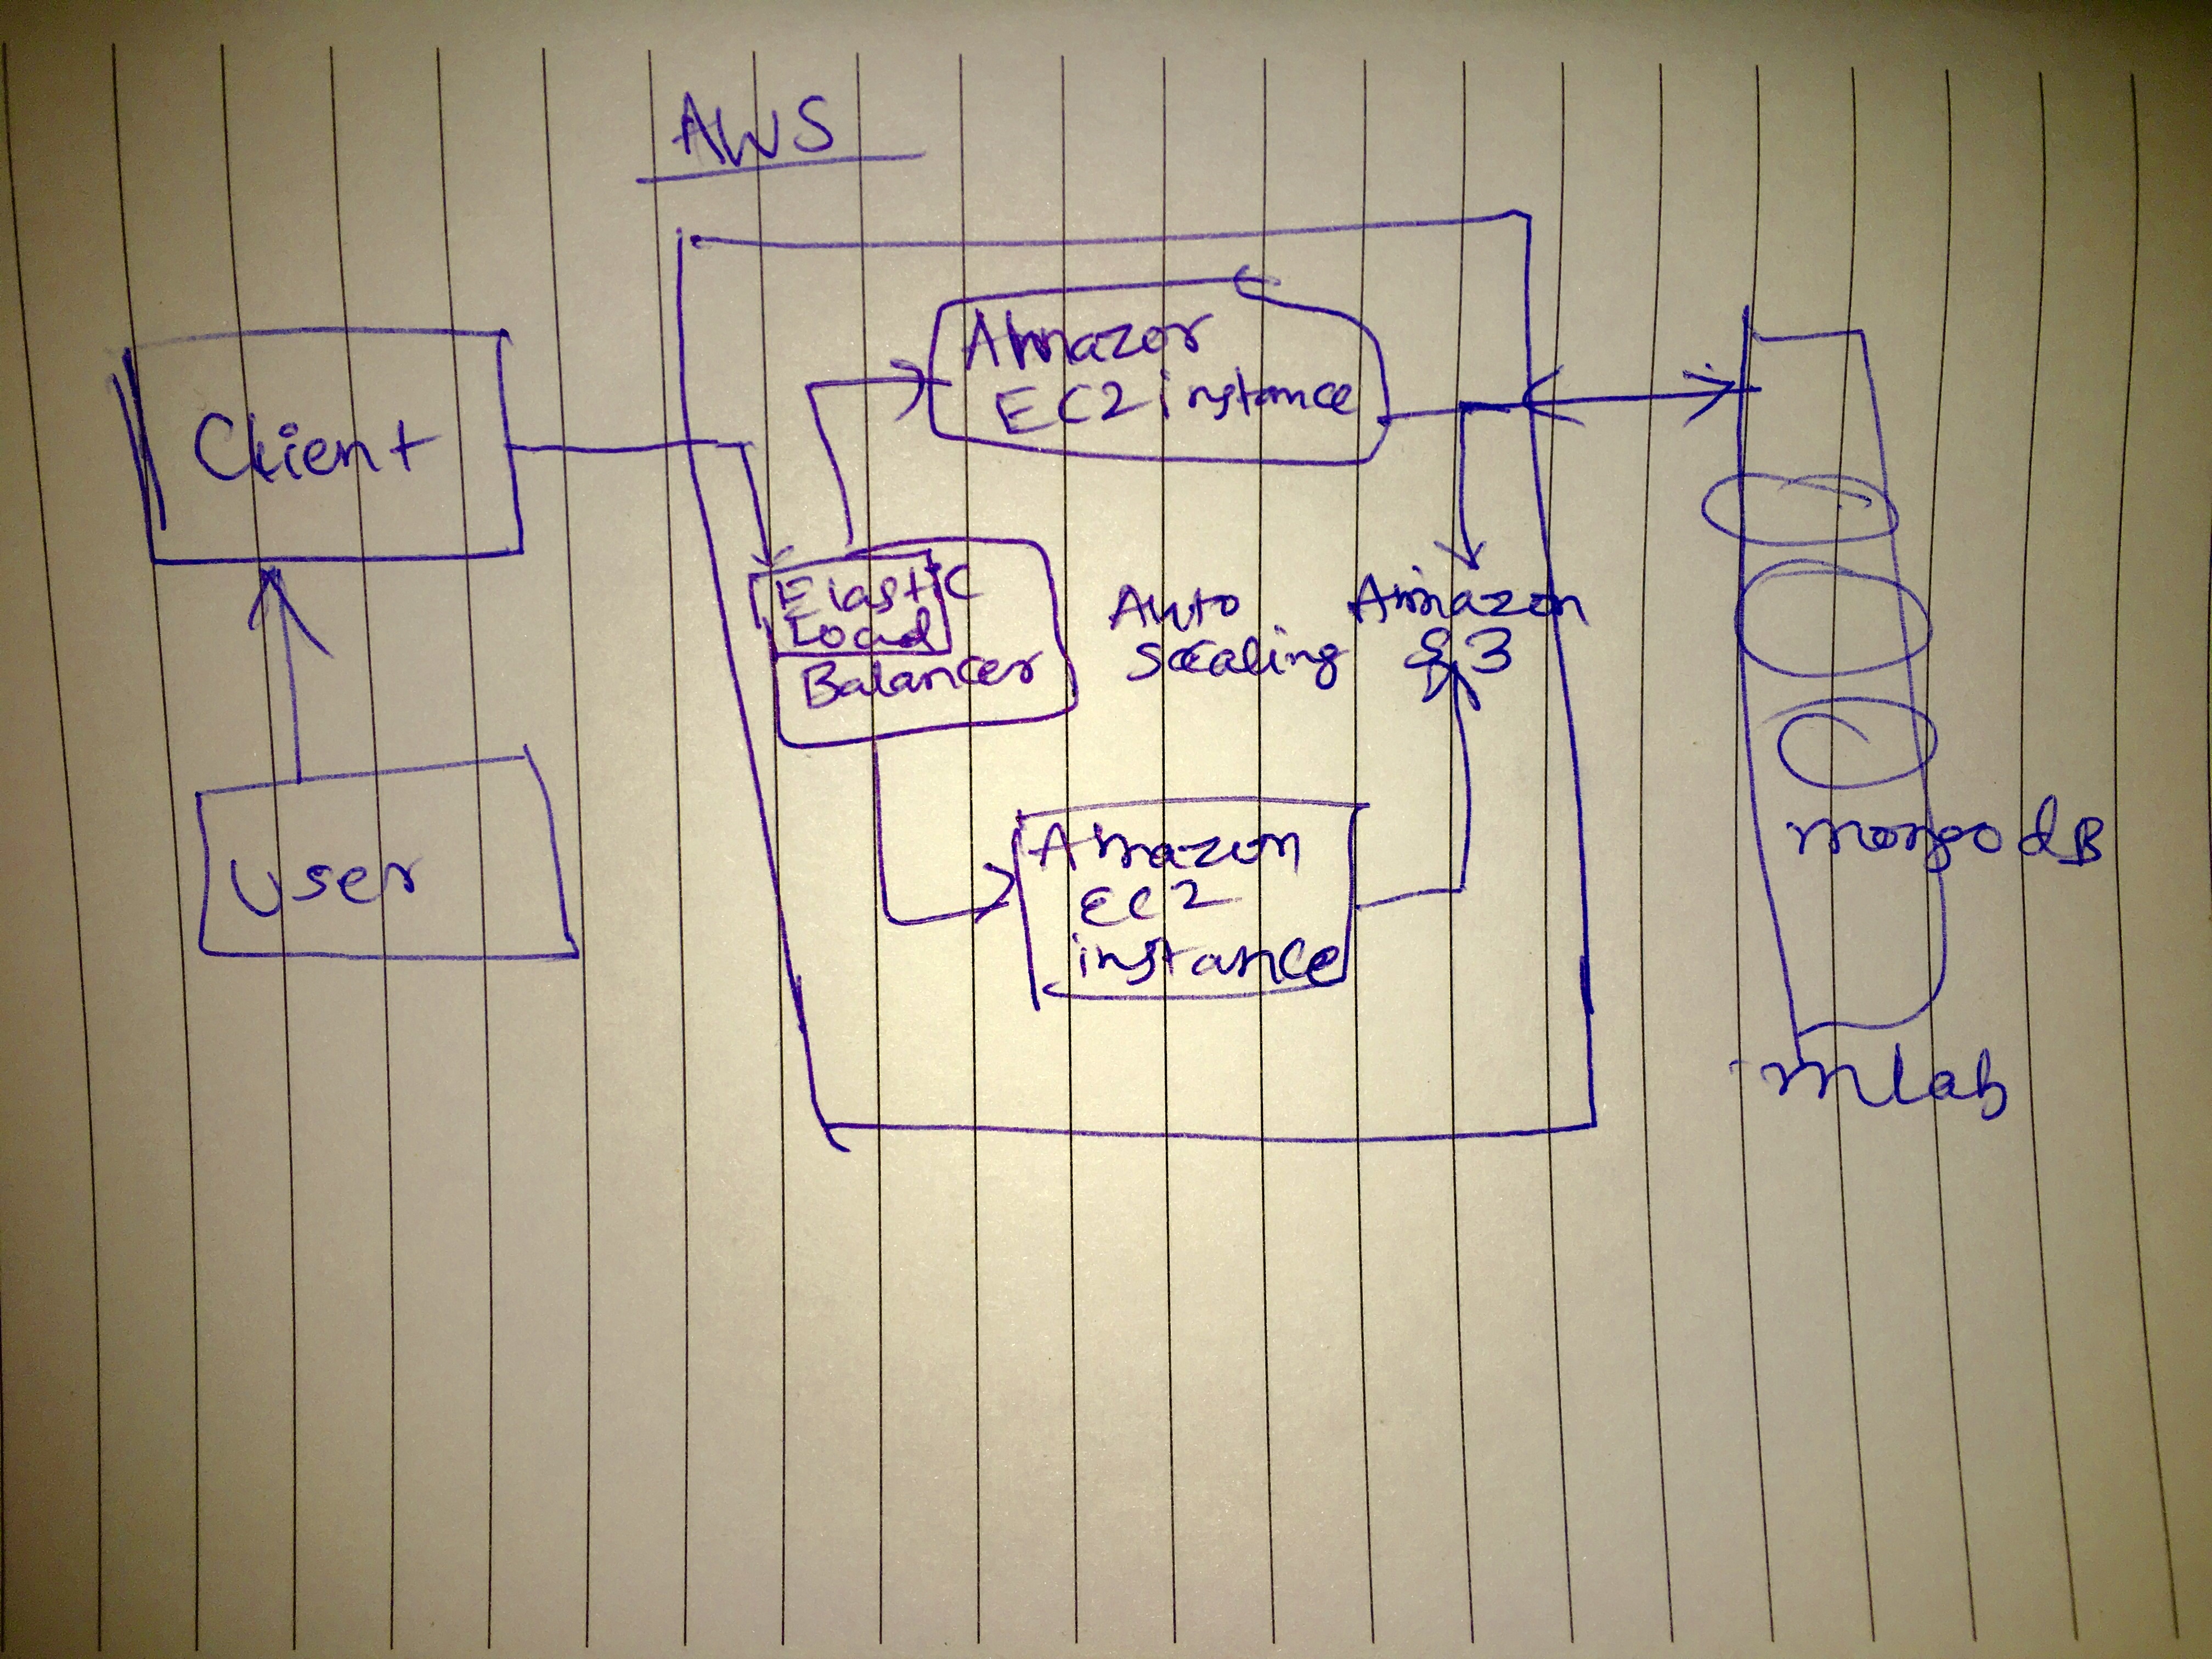 AWS
Client
User
Amazon
EC2 instance
Elastic
Load
Balancer
Auto
Scaling
Amazon
S3
Amazon
EC2
instance
mongo dB
mlab